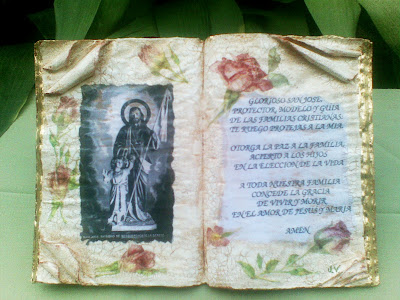 GLORIOSO SAN JOSE,
PROTECTOR, MODELO Y GUIA
DE LAS FAMILIAS CRISTIANAS:
TE RUEGO PROTEJAS A LA MIA.
OTORGA LA PAZ A LA FAMILIA,
ACIERTO A LOS HIJOS
EN LA ELECCION DE LA VIDA.
A TODA NUESTRA FAMILIA
CONCEDE LA GRACIA
DE VIVIR Y MORIR
EN EL AMOR DE JESUS Y MARIA
AMEN